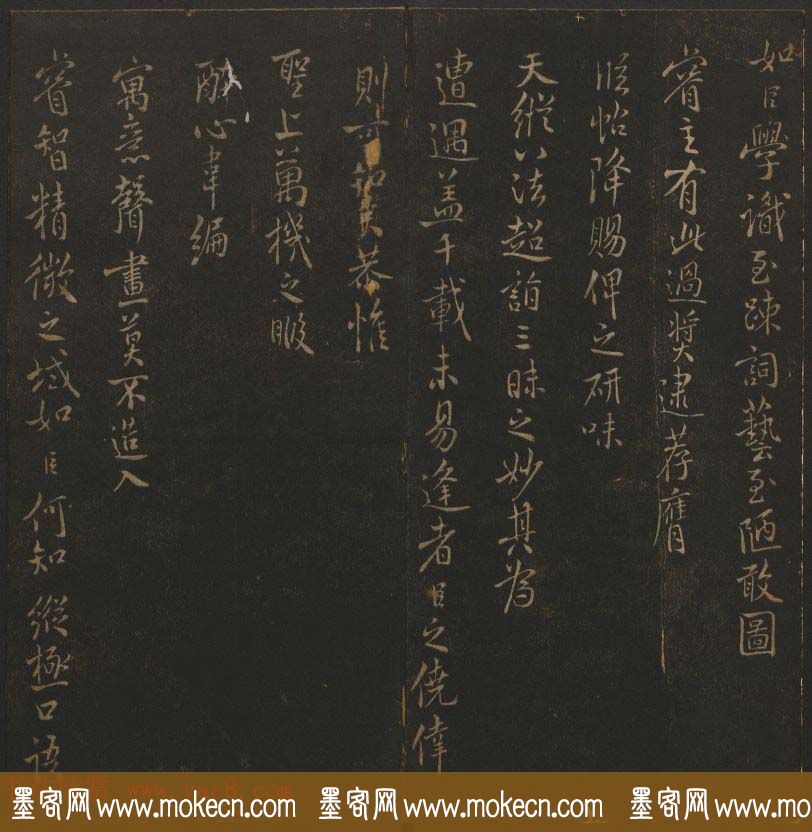 如臣學識至踈詞藝至陋敢圖
睿主有此過奬建荐膺
貺怡降賜俾之研味
天縱八法超詣三昧之妙其為
遭遇盖千載未易逢者臣之僥倖
則可知矣恭惟
聖上萬機之暇
酣心韋編
寓意聲畫莫不造入
睿智精微之域如臣何知縱極口語
墨客网 www.mokecn.com 墨客网 www.mokecn.com 墨客网 www.mo
www.yac8.com